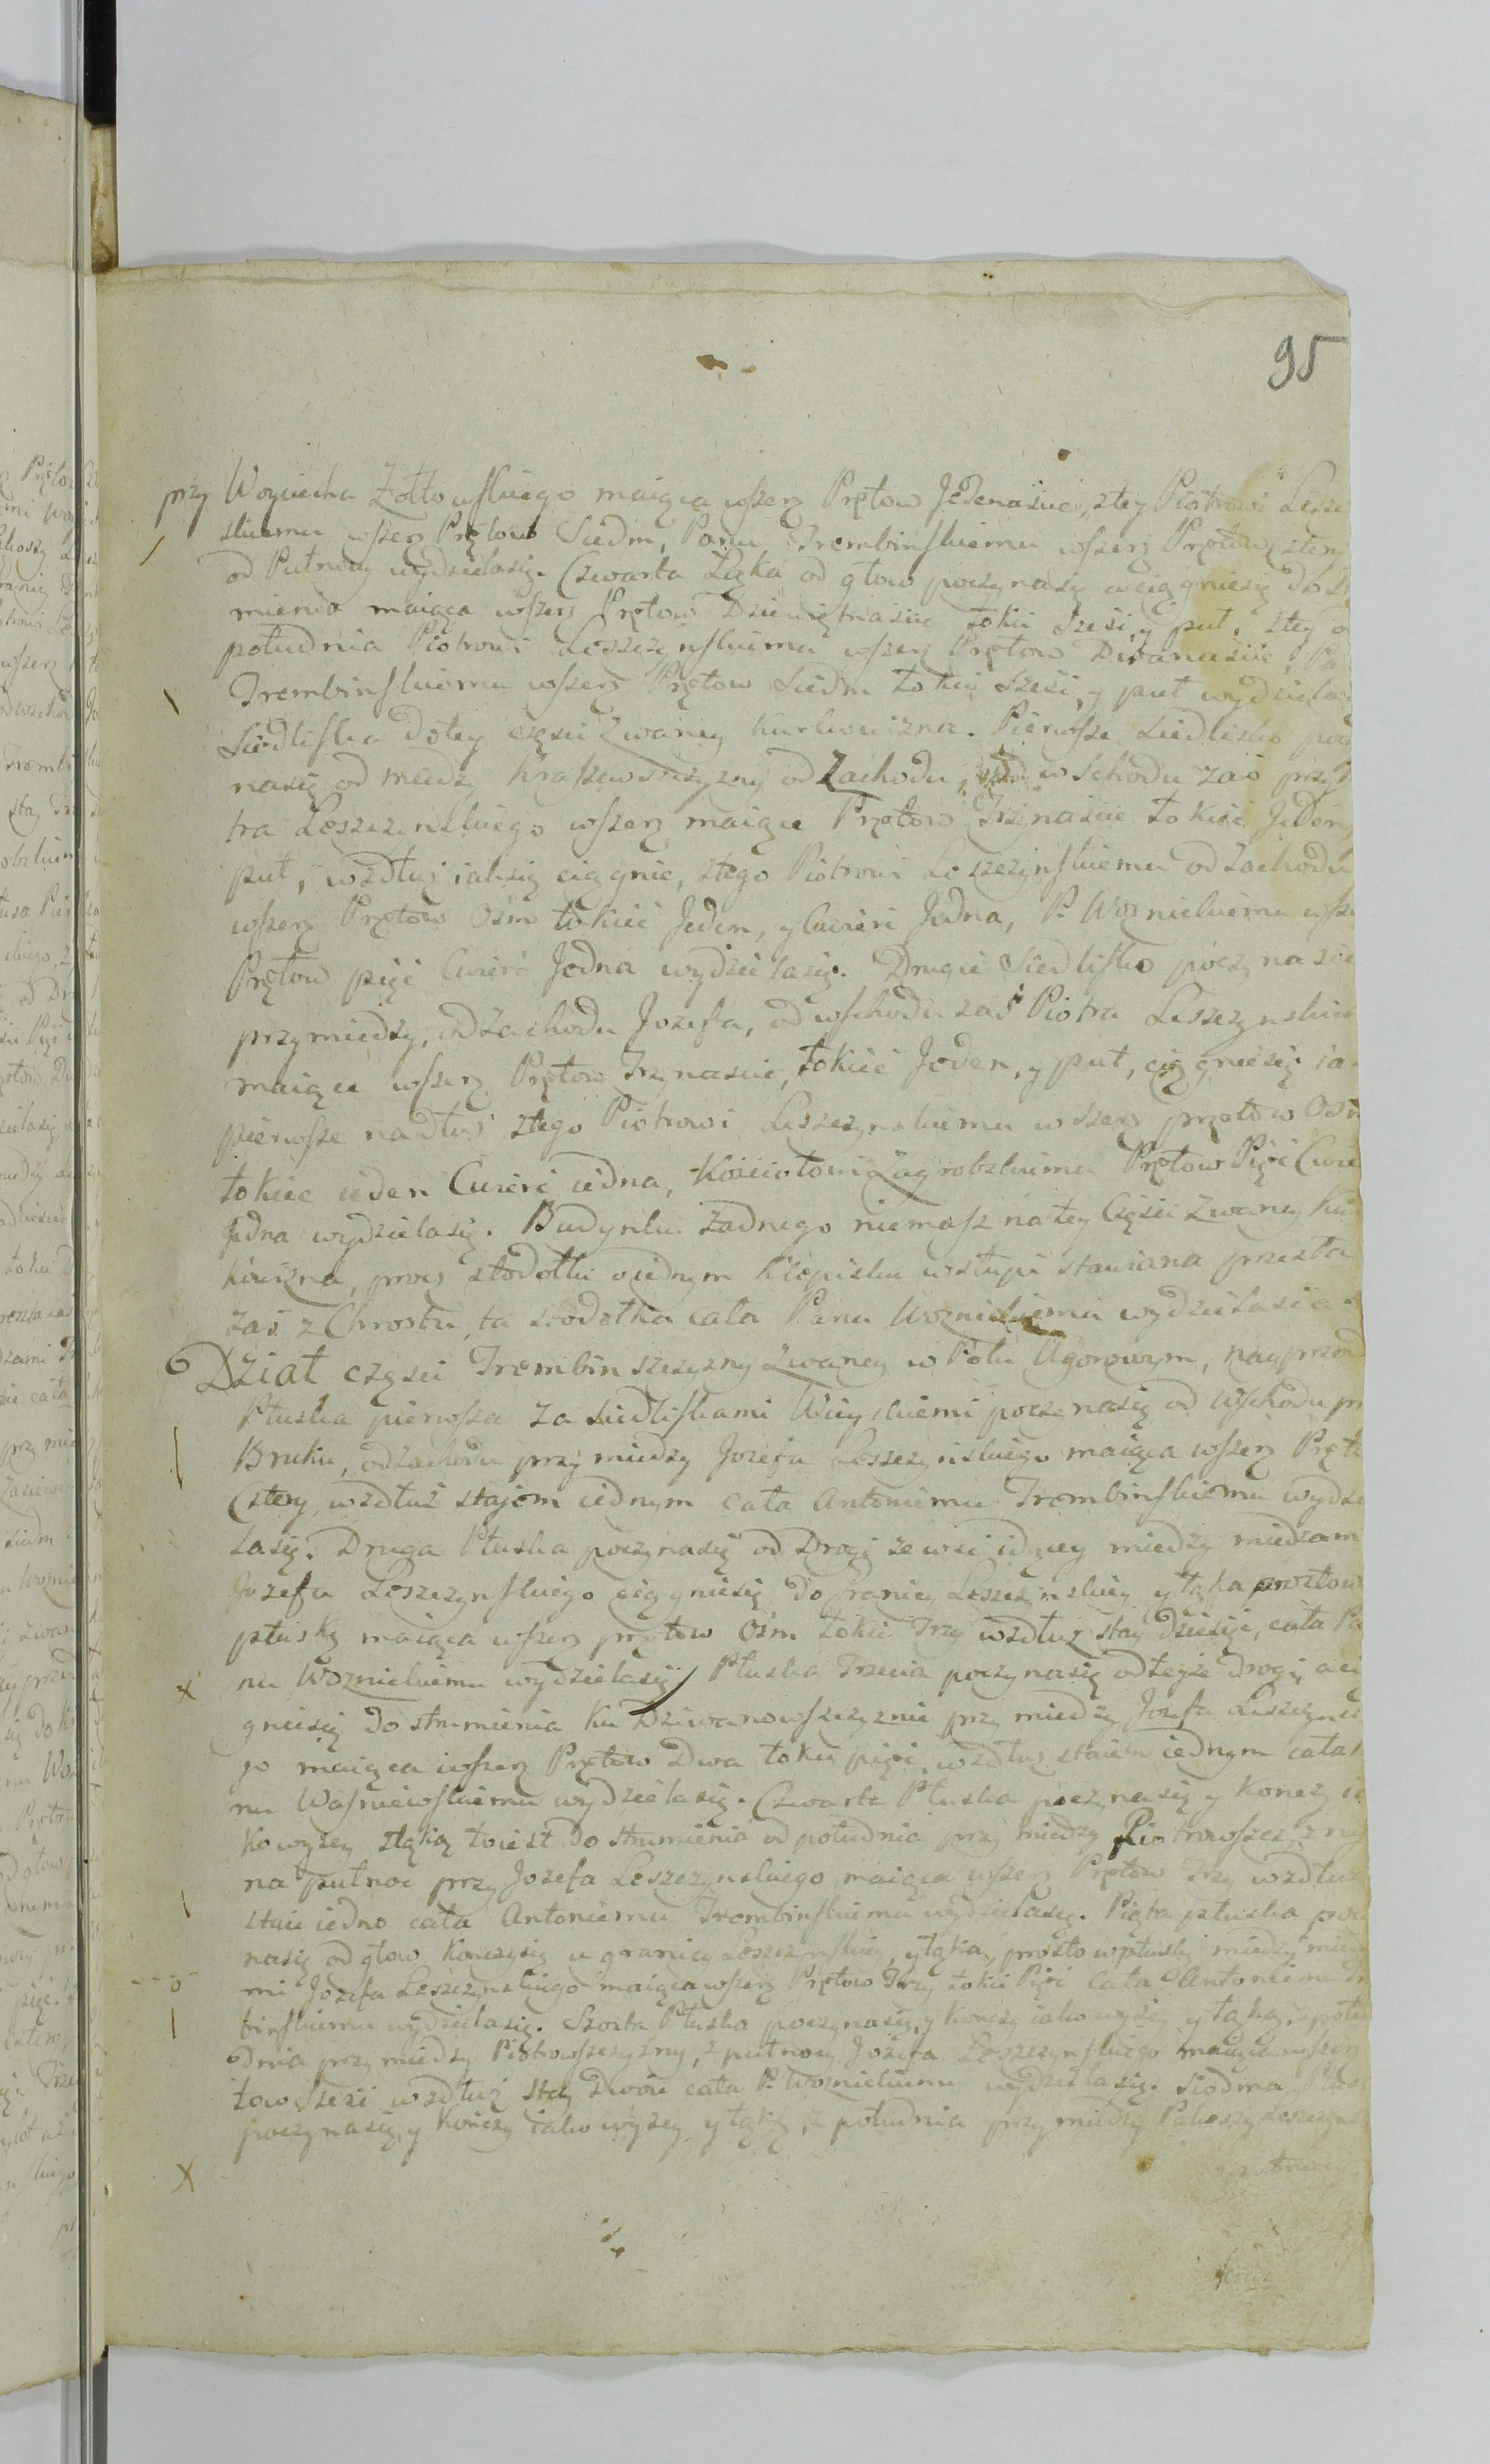 95
przy Woyciecha Zołtowskiego maiąca wszerz Prętow Jedenascie, ztey Piotrowi Lesz
skiemu wszerz Prętow Siedm, Panu Trembinskiemu wszerz Prętow cztery
od Putnocy wydzielasię. Czwarta Łąka od głow poczynasię a ciągniesię do st
mienia maiąca wszerz Prętow Dziewiętnascie łokci sześć, y puł, ztey o
południa Piotrowi Leszczynskiemu wszerz Prętow Dwanascie, Pa
Trembinskiemu wszerz Prętow Siedm łokci sześć, y puł wydzielas
Siedliska dotey części zwaney Kurkowizna. Pierwsze Siedlisko poc
nasię od miedzy Kraszewszczyzny od Zachodu, od wschodu zaś przy
tra Leszczynskiego wszerz maiące Prętow Trzynascie łokieć Jeden
puł, wzdłuż iaksię ciągnie, ztego Piotrowi Leszczynskiemu od zachodu
wszerz Prętow Osm łokieć Jeden, y Cwierć Jedna, P. Woznickiemu wsze
Prętow pięć Cwierć Jedna wydzielasię. Drugie Siedlisko poczynasie
przymiedzy, odzachodu Jozefa, od wschodu zaś Piotra Leszczynskie
maiące wszerz Prętow Trzynascie, łokieć Jeden, y puł, ciągniesię ia
pierwsze nadłuż ztego Piotrowi Leszczynskiemu wszerz prętow Osm
łokiec ieden Cwierć iedna, Kościołowi Zagrobskiemu Prętow Pięć Cwie
Jedna wydzielasię. Budynku żadnego niemasz natey Części zwaney Ku
kowizna, procz stodołki oiednym Klepisku wsłupi stawiana przesła
zaś z Chrostu, ta stodołka cała Panu Woznickiemu wydzielasie
6 Dział części Trembinszczyzny zwaney w Polu Ugorowym, nayprzod
Płuska pierwsza za siedliskami Wieyskiemi poczynasię od Wschodu pr
Bruku, odzachodu przy miedzy Jozefa Leszczynskiego maiąca wszerz Pręt
Cztery, wzdłuż stajem iednym cała Antoniemu Trembinskiemu wydzie
lasię. Druga Płuska poczynasię od Drogi ze wsi idącey miedzy miedzam
Jozefa Leszczynskiego ciągniesię do Granicy Leszczynskiey y łąka prosto w
płuskę maiąca wszerz prętow Osm łokci Trzy wzdłuż stay dziesięć, cała Pa
nu Woznickiemu wydzielasię Płuska Trzecia poczynasię odteyże drogi, a cią
gniesię do strumienia ku Dziwanowszczyznie przy miedzy Jozefa Leszczynski
go maiąca wszerz Prętow Dwa łokci pięć, wzdłuż staiem iednym cała
nu Wasniewskiemu wydzielasię. Czwarta Płuska poczynasię y konczy ia
ko wyżey złąką toiest do strumienia od południa przy miedzy Piotrowszczyzny
na putnoc przy Jozefa Leszczynskiego maiąca wszerz Prętow Trzy wzdłuż
staie iedno cała Antoniemu Trembinskiemu wydzielasię. Piąta płuska pocz
nasię od głow konczysię u granicy Leszczynskiey, y łąka, prosto wpłuskę miedzy mied
mi Jozefa Leszczynskiego maiąca wszerz Prętow Trzy łokci Pięć Cała Antoniemu Tr
binskiemu wydzielasię. Szosta Płuska poczynasię, y konczy iako wyżey y łąką, z połu
dnia przy miedzy Piotrowszczyzny, z putnocy Jozefa Leszczynskiego maiąca wszerz
tow sześć wzdłuż stay Dwoie cała P. Woznickiemu wydzielasię. Siodma Płus
poczynasię, y konczy iako wyżey y łąką, z południa przy miedzy Pakoszy Leszczyns